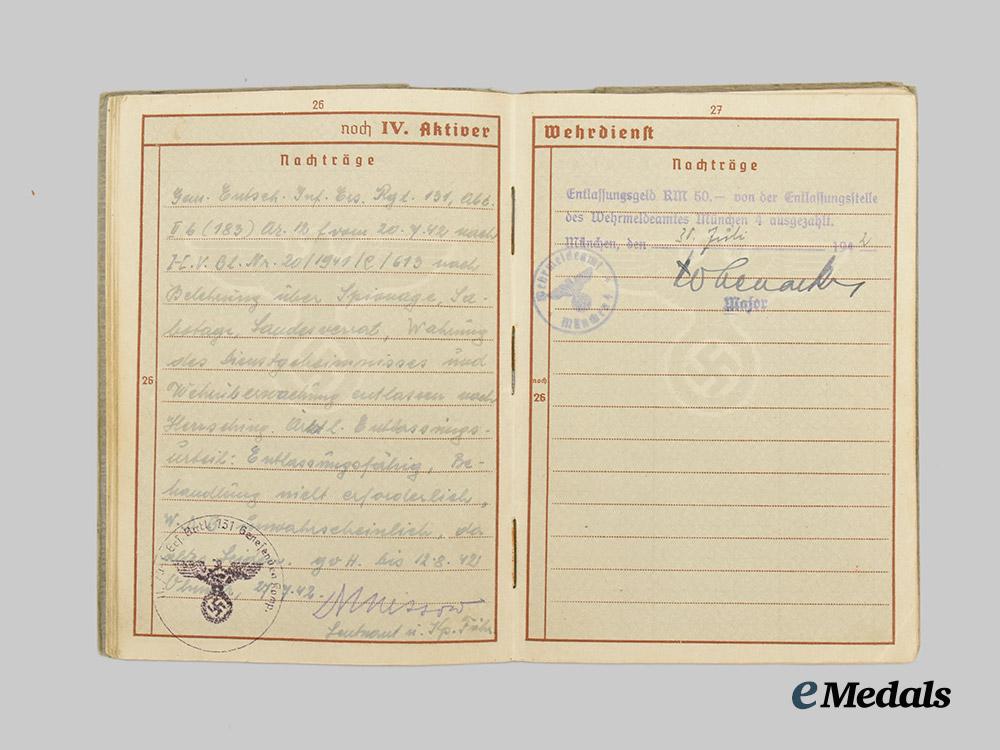 26
noch IV. Aktiver
Nachträge
Gem. Entsch. Inf. Ers. Rgt. 131, Abt.
II b (183) Az. 12 f vom 20.7.42 nach
H.V. Bl. Nr. 20/1941/C/613 nach
Belehrung über Spionage, Sa-
botage, Landesverrat, Wahrung
des Dienstgeheimnisses und
Wehrüberwachung entlassen nach
Herrsching. Ärztl. Entlassungs-
urteil: Entlassungsfähig, Be-
handlung nicht erforderlich,
unwahrscheinlich, da
gvH. bis 12.8.42
27.7.42.
Leutnant u. Kp.
26
Genesenden Komp.
27
Wehrdienst
Nachträge
Entlassungsgeld RM 50.— von der Entlassungsstelle
des Wehrmeldeamtes München 4 ausgezahlt.
München, den 31. Juli 1942
Major
Wehrmeldeamt
München 4
noch
26
eMedals